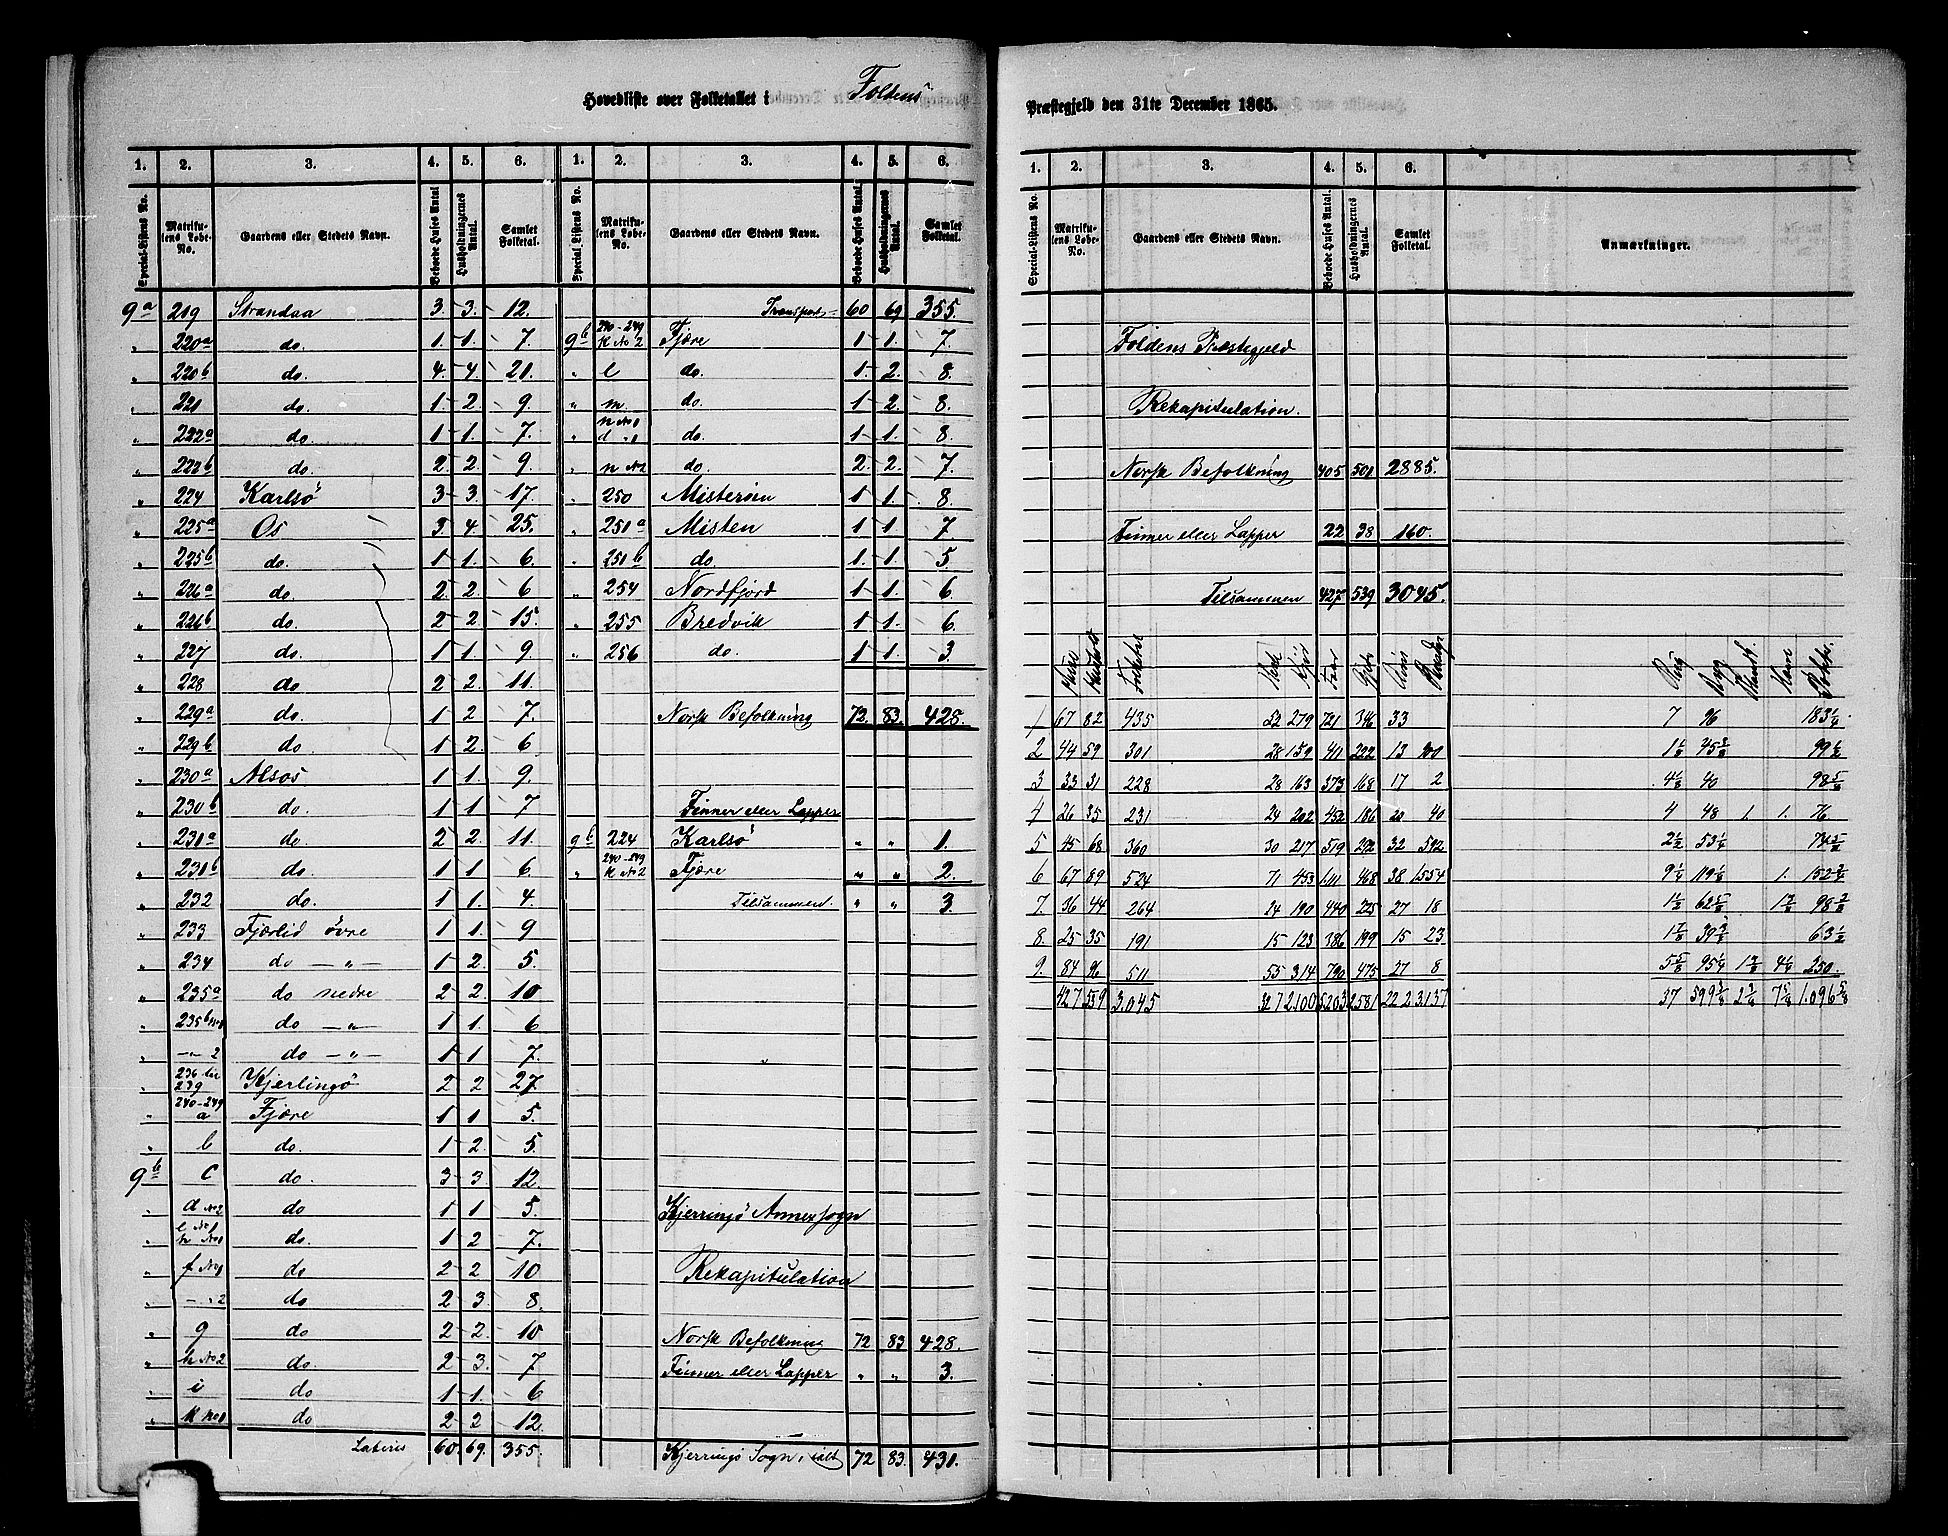 Hovedliste over Folketallet i Foldens
1. 2. 3. 4. 5. 6. 1. 2. 3. 4. 5. 6.
Special-Listens No. Matrikulens Løbe-No. Gaardens eller Stedets Navn. Beboede Huses Antal Husholdningernes Antal. Samlet Folketal. Special-Listens No. Matrikulens Løbe-No. Gaardens eller Stedets Navn. Beboede Huses Antal. Husholdningernes Antal. Samlet Folketal.
9a 219 Strandaa 3. 3. 12.
" 220a do. 1. 1. 7.
" 220b do. 4. 4. 21.
" 221 do. 1. 2. 9.
" 222a do. 1 1. 7.
" 222b do. 2. 2. 9.
" 224 Karlsø 3 3. 17.
" 225a Os 3. 4. 25.
" 225b do. 1 1. 6.
" 226a do. 2 2. 6
" 226b do. 2 2 15.
" 227 do. 1 1. 9.
" 228 do 2 2. 11.
" 229a do. 1 2 7.
" 229b do 1 2. 6
" 230a Alsos 1 1. 9.
" 230b do. 1 1. 7
" 231a do. 2 2. 11.
" 231b do. 1 1 6.
" 232 do. 1 1. 4.
" 233 Fjærlid øvre 1 1. 9
" 234 do — " — 1 2. 5.
" 235a do nedre 2 2. 10
" 235b No1 do — " — 1 1. 6
" —"— 2 do — " — 1 1 7.
" 236 til 239 Kjerlingø 2 2 27.
" 240-249 a Fjære 1 1. 5.
" b do 1 2. 5
9b c do. 3 3 12.
" d No2 do 1 1 5.
" e No1 h No1 do. 1 2 7.
" f No1 do 2 2 10
" — " 2 do 2 3 8.
" g do 2 2. 10
" h No2 do. 2 3. 7
" i do 1 1. 6
" k No1 do 2 2 12.
Lateris 60. 69. 355.
Transport 60 69 355.
9b 240-249 k No2 Fjære 1 1. 7.
" l do. 1 2. 8.
" m. do. 1 2. 8.
" n No1 d "1 do. 1 1. 8.
" n No2 do. 2. 2. 7.
" 250 Misterøen 1 1. 8
" 251a Misten 1 1. 7
" 251b do. 1. 1. 5
" 254 Nordfjord 1 1. 6
" 255 Bredvik 1 1. 6.
" 256 do. 1 1. 3.
Norsk Befolkning 72. 83. 428.
Finner eller Lapper
9b 224 Karlsø " " 1.
" 240-249 k No2 Fjære " " 2.
Tilsammen. " " 3.
Kjerringø Annexsogn
Rekapitulation
Norsk Befolkning 72 83 428.
Finner eller Lapper " " 3.
Kjerringø Sogn, ialt 72 83. 431.
Præstegjeld den 31te December 1865.
1. 2. 3. 4. 5. 6.
Special-Listens No. Matrikulens Løbe-No. Gaardens eller Stedets Navn. Beboede Huses Antal. Husholdningernes Antal. Samlet Folketal. Anmærkninger.
Foldens Præstegjeld
Rekapitulation.
Norsk Befolkning 405 501 2885.
Finner eller Lapper 22 38 160.
Tilsammen 427 539 3045.
Huse Hushold Folketal Heste Faar Rug Byg Havre
1 67 82 435 52 279 721 346 33 7 96 183 1/4
2 44 59 301 28 159 411 222 13 45 3/8 99 1/2
3 33 31 228 28 163 373 168 17 2 4 1/8 40 98 5/8
4 26 35 231 24 202 452 186 20 40 4 48 1. 1. 76
5 45 68 360 30 217 519 292 32 542 2 1/2 53 1/4
6 67 89 524 71 453 1111 468 38 1554 9 1/4 119 1/8 1. 152 3/4
7. 36 44 264 24 190 440 225 27 18 62 5/8 98 3/8
8. 25 35 191 15 123 386 199 15 23 39 3/8 63 1/2
9. 84 96 511 55 314 790 475 27 8 5 5/8 95 1/4 250.
427 539 3.045 327 2100 5203 2581 222 3137 37 599 3/8 1.096 5/8